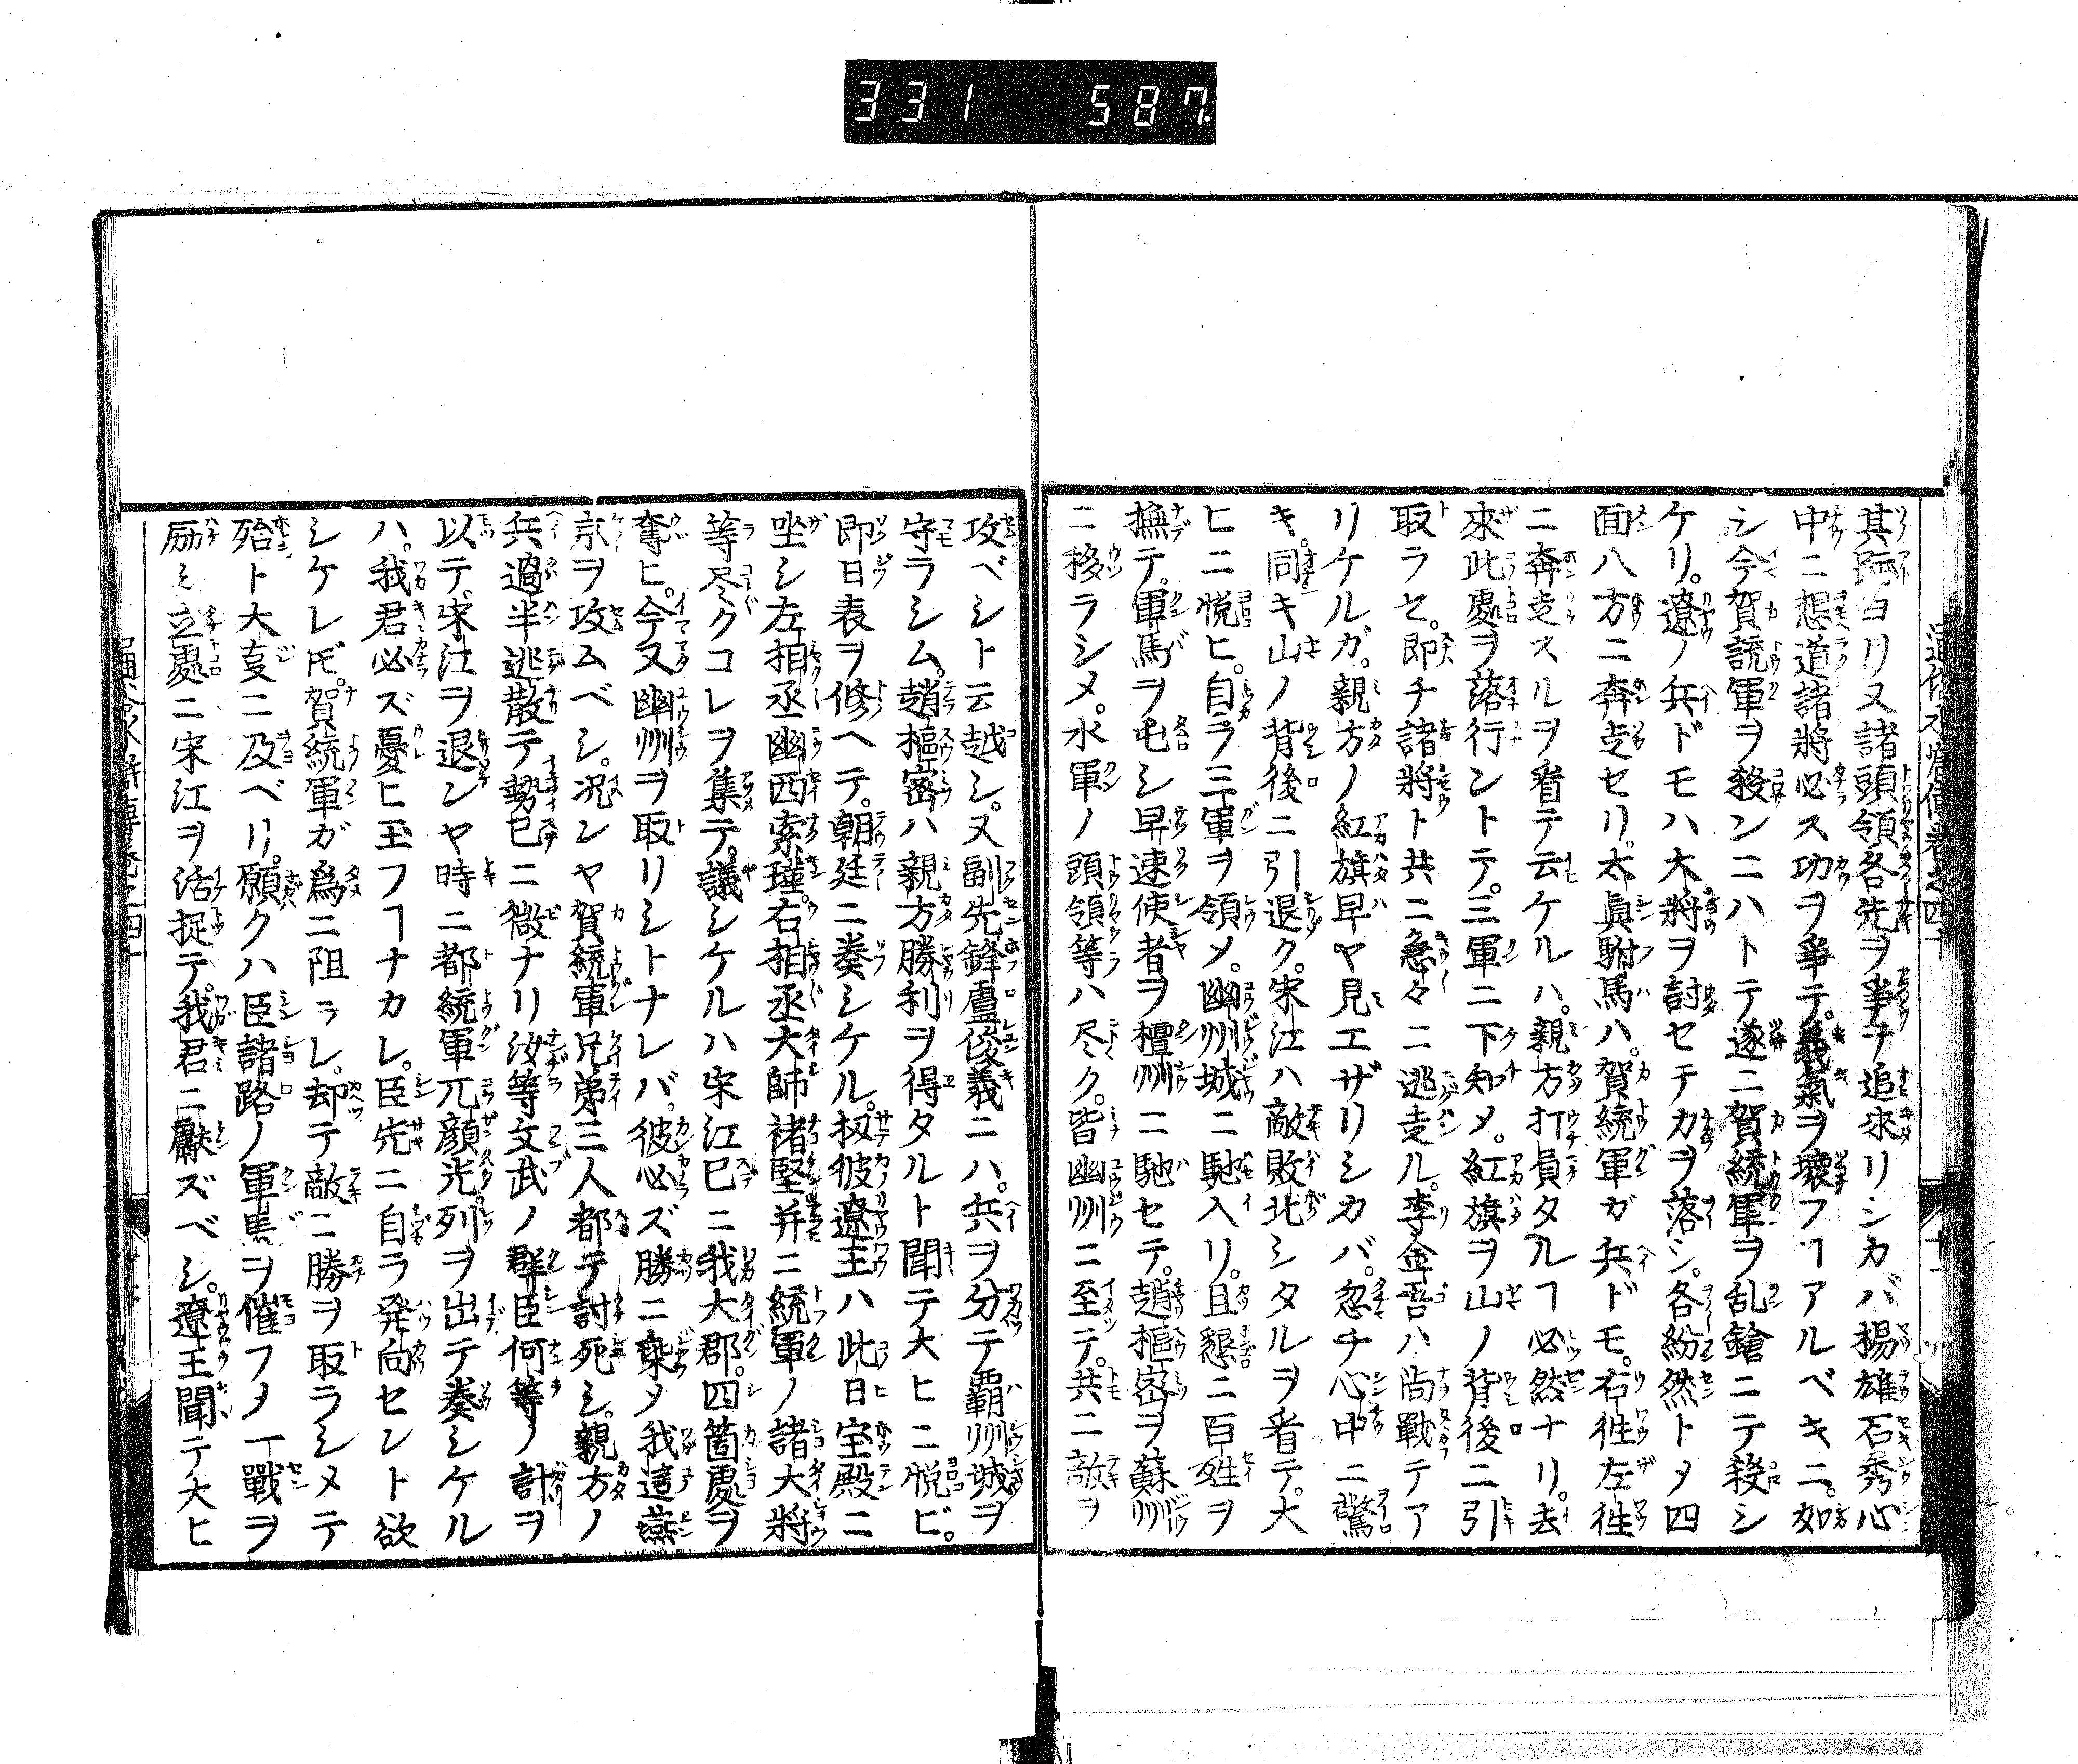 331 587
其跡ヨリ又諸頭領各先ヲ爭テ追來リシカバ楊雄石秀心
中ニ想道諸將必ス功ヲ爭テ義氣ヲ壊フヿアルベキニ如
シ今賀統軍ヲ殺ンニハトテ遂ニ賀統軍ヲ乱鎗ニテ殺シ
ケリ遼ノ兵ドモハ大將ヲ討セテカヲ落シ各紛然トメ四
面八方ニ奔走セリ太眞駙馬ハ賀統軍ガ兵ドモ右徃左徃
ニ奔走スルヲ看テ云ケルハ親方打負タルヿ必然ナリ去
來此處ヲ落行ントテ三軍ニ下知メ紅旗ヲ山ノ背後ニ引
取ラセ即チ諸將ト共ニ急々ニ逃走ル李金吾ハ尚戰テア
リケルガ親方ノ紅旗早ヤ見エザリシカバ忽チ心中ニ驚
キ同キ山ノ背後ニ引退ク宋江ハ敵敗北シタルヲ看テ大
ヒニ悦ヒ自ラ三軍ヲ領メ幽州城ニ馳入リ且懇ニ百姓ヲ
撫テ軍馬ヲ屯シ早速使者ヲ檀州ニ馳セテ趙樞密ヲ蘇州
ニ移ラシメ水軍ノ頭領等ハ尽ク皆幽州ニ至テ共ニ敵ヲ
攻ベシト云越シ又副先鋒盧俊義ニハ兵ヲ分テ覇州城ヲ
守ラシム趙樞密ハ親方勝利ヲ得タルト聞テ大ヒニ悦ビ
即日表ヲ修ヘテ朝廷ニ奏シケル扨彼遼王ハ此日宝殿ニ
坐シ左相丞幽西索瑾右相丞大師褚堅并ニ統軍ノ諸大將
等尽クコレヲ集テ議シケルハ宋江已ニ我大郡四箇處ヲ
奪ヒ今又幽州ヲ取リシトナレバ彼必ズ勝ニ乗メ我這燕
京ヲ攻ムベシ况ンヤ賀統軍兄弟三人都テ討死シ親方ノ
兵過半逃散テ勢已ニ微ナリ汝等文武ノ群臣何等ノ計ヲ
以テ宋江ヲ退ンヤ時ニ都統軍兀顔光列ヲ出テ奏シケル
ハ我君必ズ憂ヒ玉フヿナカレ臣先ニ自ラ発向セント欲
シケレ𪜈賀統軍ガ爲ニ阻ラレ却テ敵ニ勝ヲ取ラシメテ
殆ト大叓ニ及ベリ願クハ臣諸路ノ軍馬ヲ催フメ一戰ヲ
励ミ立處ニ宋江ヲ活捉テ我君ニ獻ズベシ遼王聞テ大ヒ